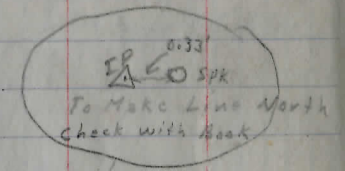 0.33'
IP Spk
To Make Line North
Check with Book